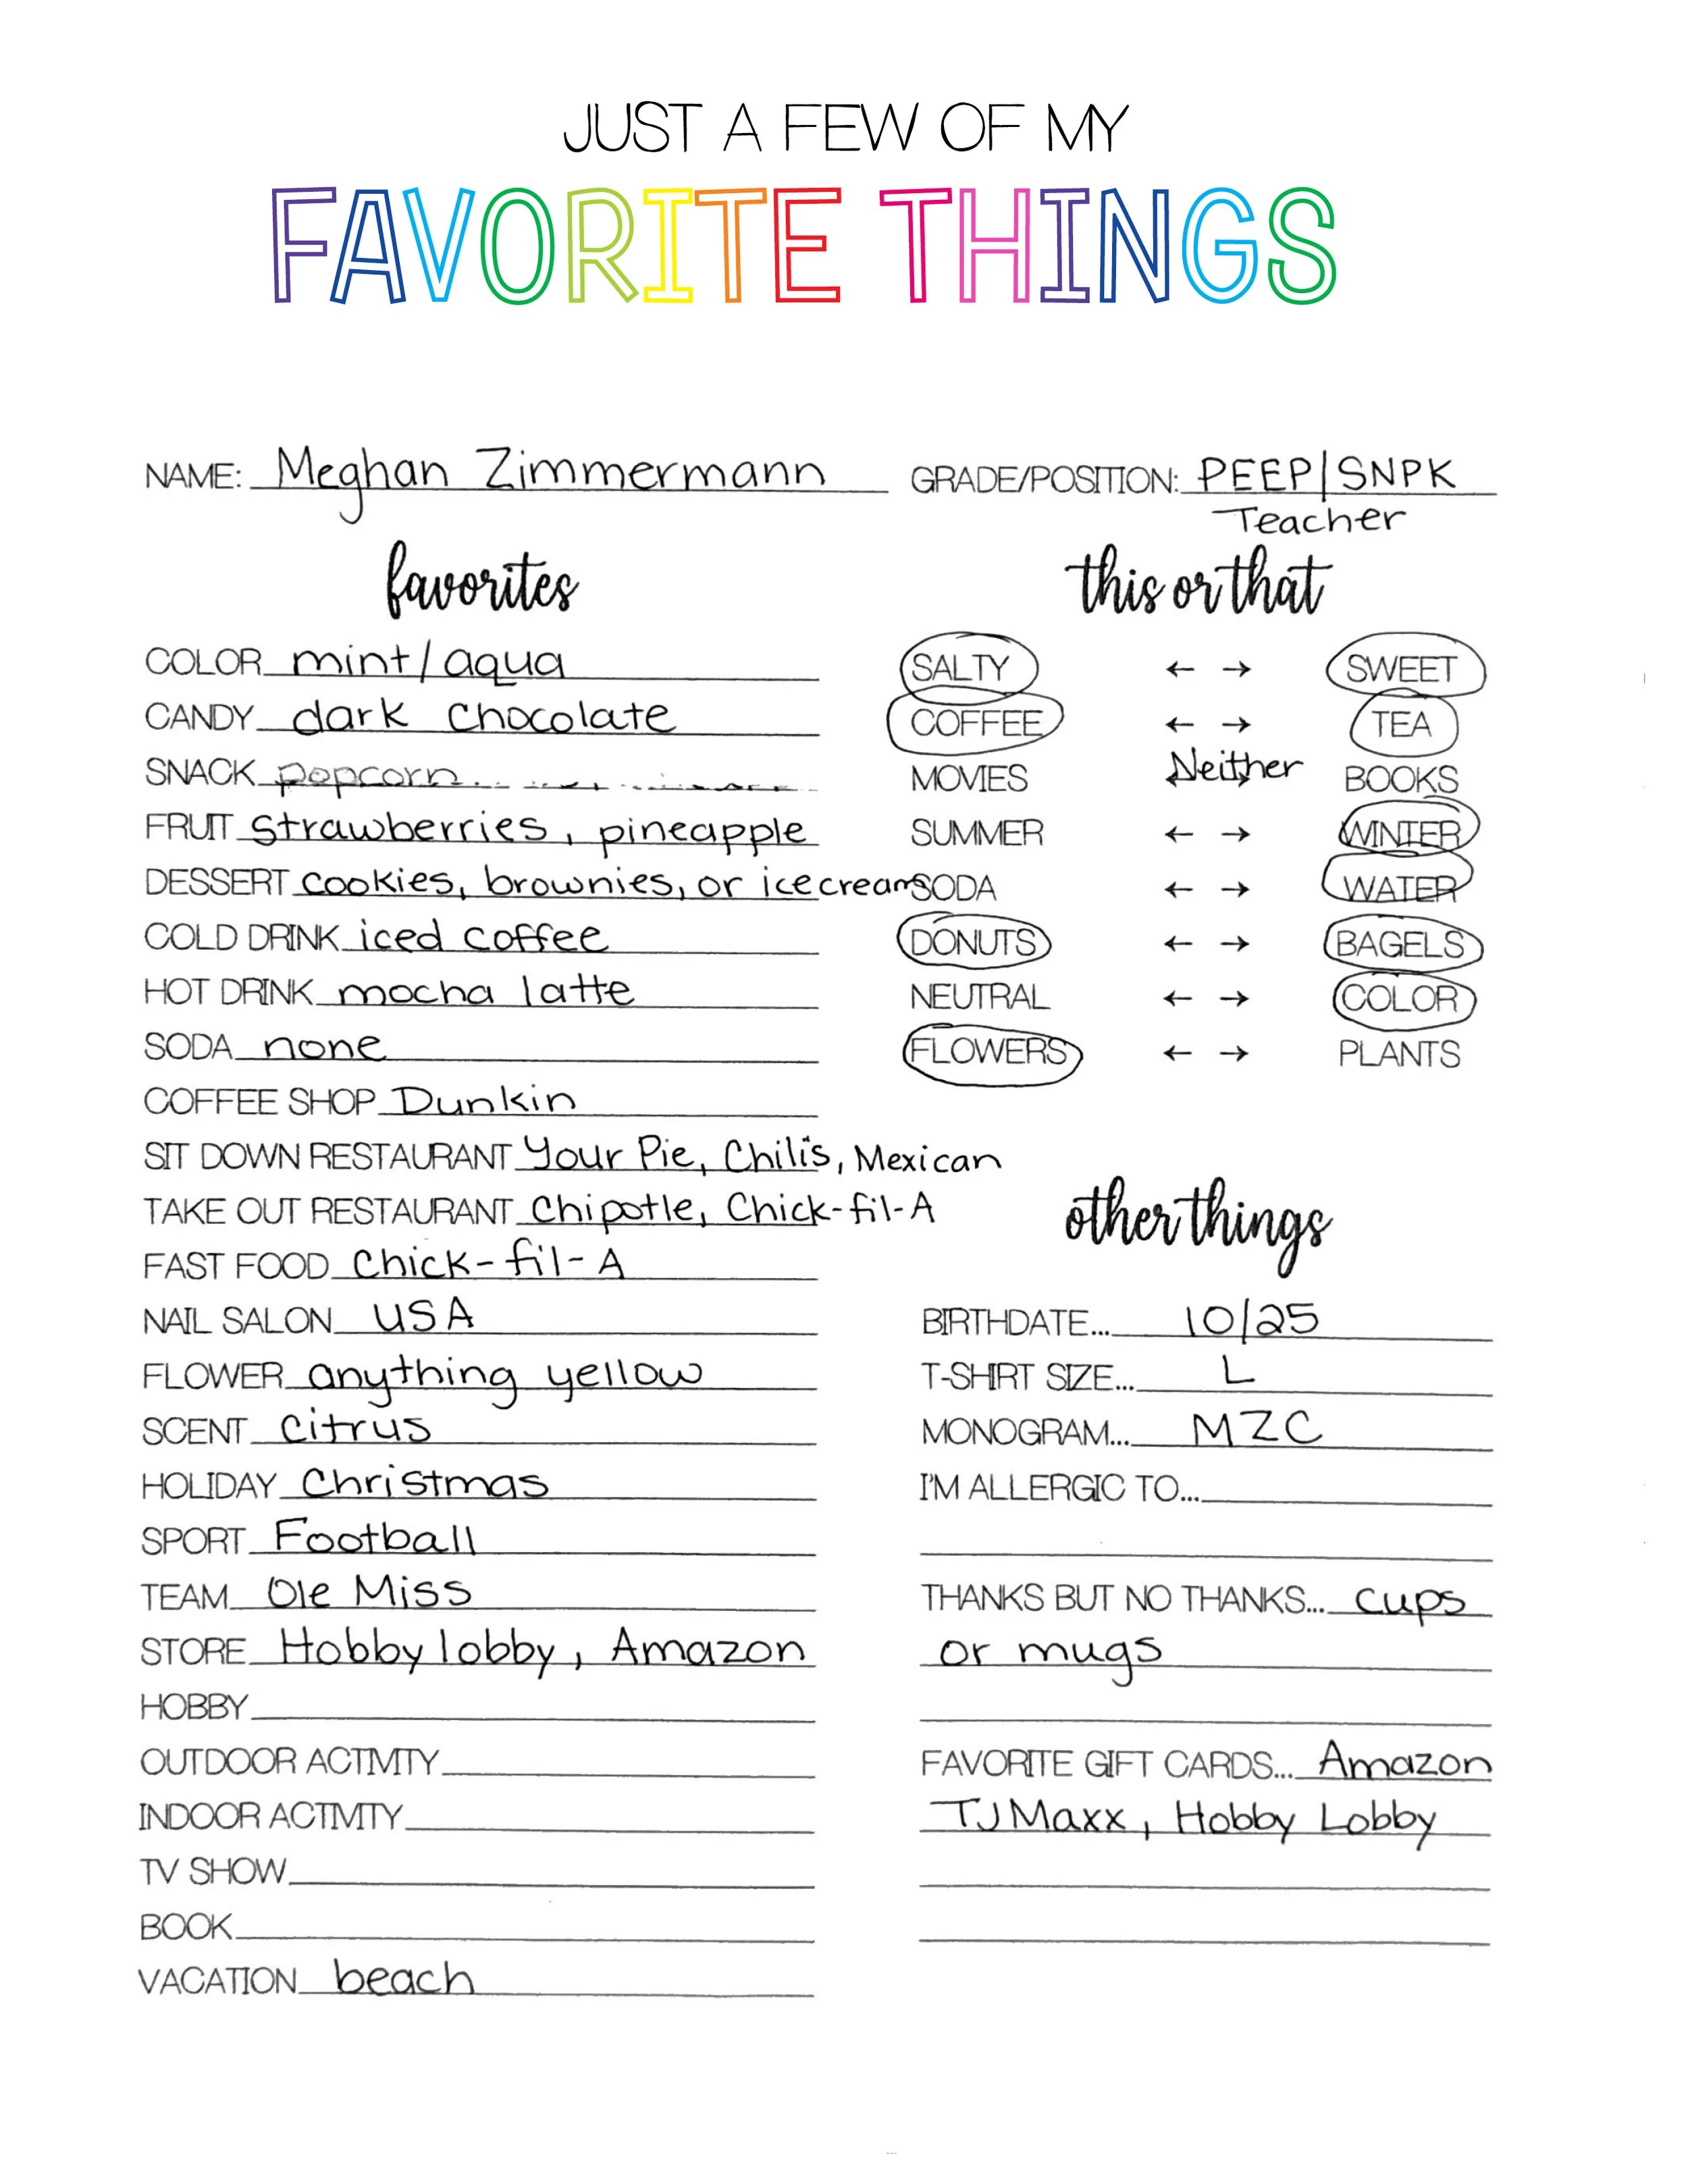 JUST A FEW OF MY
FAVORITE THINGS
NAME: Meghan Zimmermann
GRADE/POSITION: PEEP|SNPK
Teacher
favorites
COLOR mint/aqua
CANDY dark chocolate
SNACK popcorn
FRUIT strawberries, pineapple
DESSERT cookies, brownies, or icecream
COLD DRINK iced coffee
HOT DRINK mocha latte
SODA none
COFFEE SHOP Dunkin
SIT DOWN RESTAURANT Your Pie, Chili's, Mexican
TAKE OUT RESTAURANT Chipotle, Chick-fil-A
FAST FOOD Chick-fil-A
NAIL SALON USA
FLOWER anything yellow
SCENT Citrus
HOLIDAY Christmas
SPORT Football
TEAM Ole Miss
STORE Hobby lobby, Amazon
HOBBY
OUTDOOR ACTIVITY
INDOOR ACTIVITY
TV SHOW
BOOK
VACATION beach
this or that
SALTY ← → SWEET
COFFEE ← → TEA
MOVIES Neither BOOKS
SUMMER ← → WINTER
SODA ← → WATER
DONUTS ← → BAGELS
NEUTRAL ← → COLOR
FLOWERS ← → PLANTS
other things
BIRTHDATE... 10/25
T-SHIRT SIZE... L
MONOGRAM... MZC
I'M ALLERGIC TO...
THANKS BUT NO THANKS... cups
or mugs
FAVORITE GIFT CARDS... Amazon
TJMaxx, Hobby Lobby